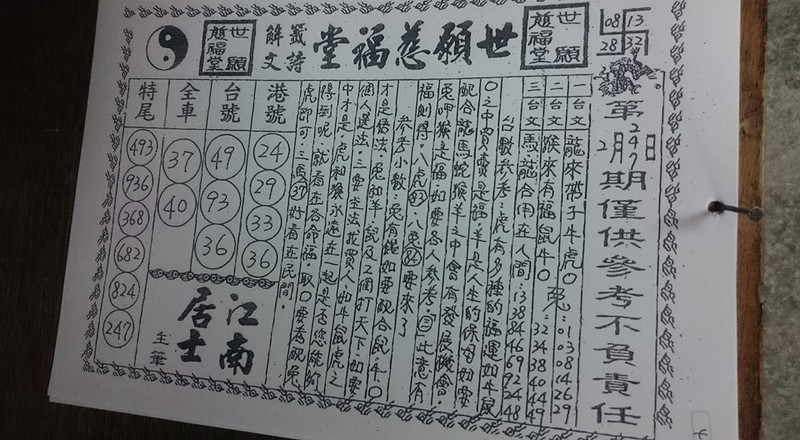 08 13
28 32
世願慈福堂
世願慈福堂
籤詩解文
世願慈福堂
第 期僅供參考不負責任
2月 日
一台文 龍來帶子牛虎○ 兔:01 03 08 14 26 29
二台文 猴來有福鼠牛○ 32 34 38 40 44 49
三台文 馬龍合用在人間:13 38 84 46 69 92 24 48
台數參考:虎有多種的福運如牛鼠
○之中買賣是福,羊是人生的保母如要
配合龍馬蛇猴羊之中會有發展機會。
兔呷猴是福,如要各人參考, 此意有
福則得。八虎83、八兔84要來了
參考小數:兔有錢如要配合鼠牛○
才是 法,兔和羊鼠及 個打天下,如要
個人選法,三要主法找買人,如牛鼠虎之
中才是,虎和猴永遠在一起是否您能所
得到呢 就看在各命福。取○要考配兔
虎即可。三馬37好看在民間。
港號 24 29 33 36
台號 49 93 36
全車 37 40
特尾 493 936 368 682 824 247
江南居士
主筆